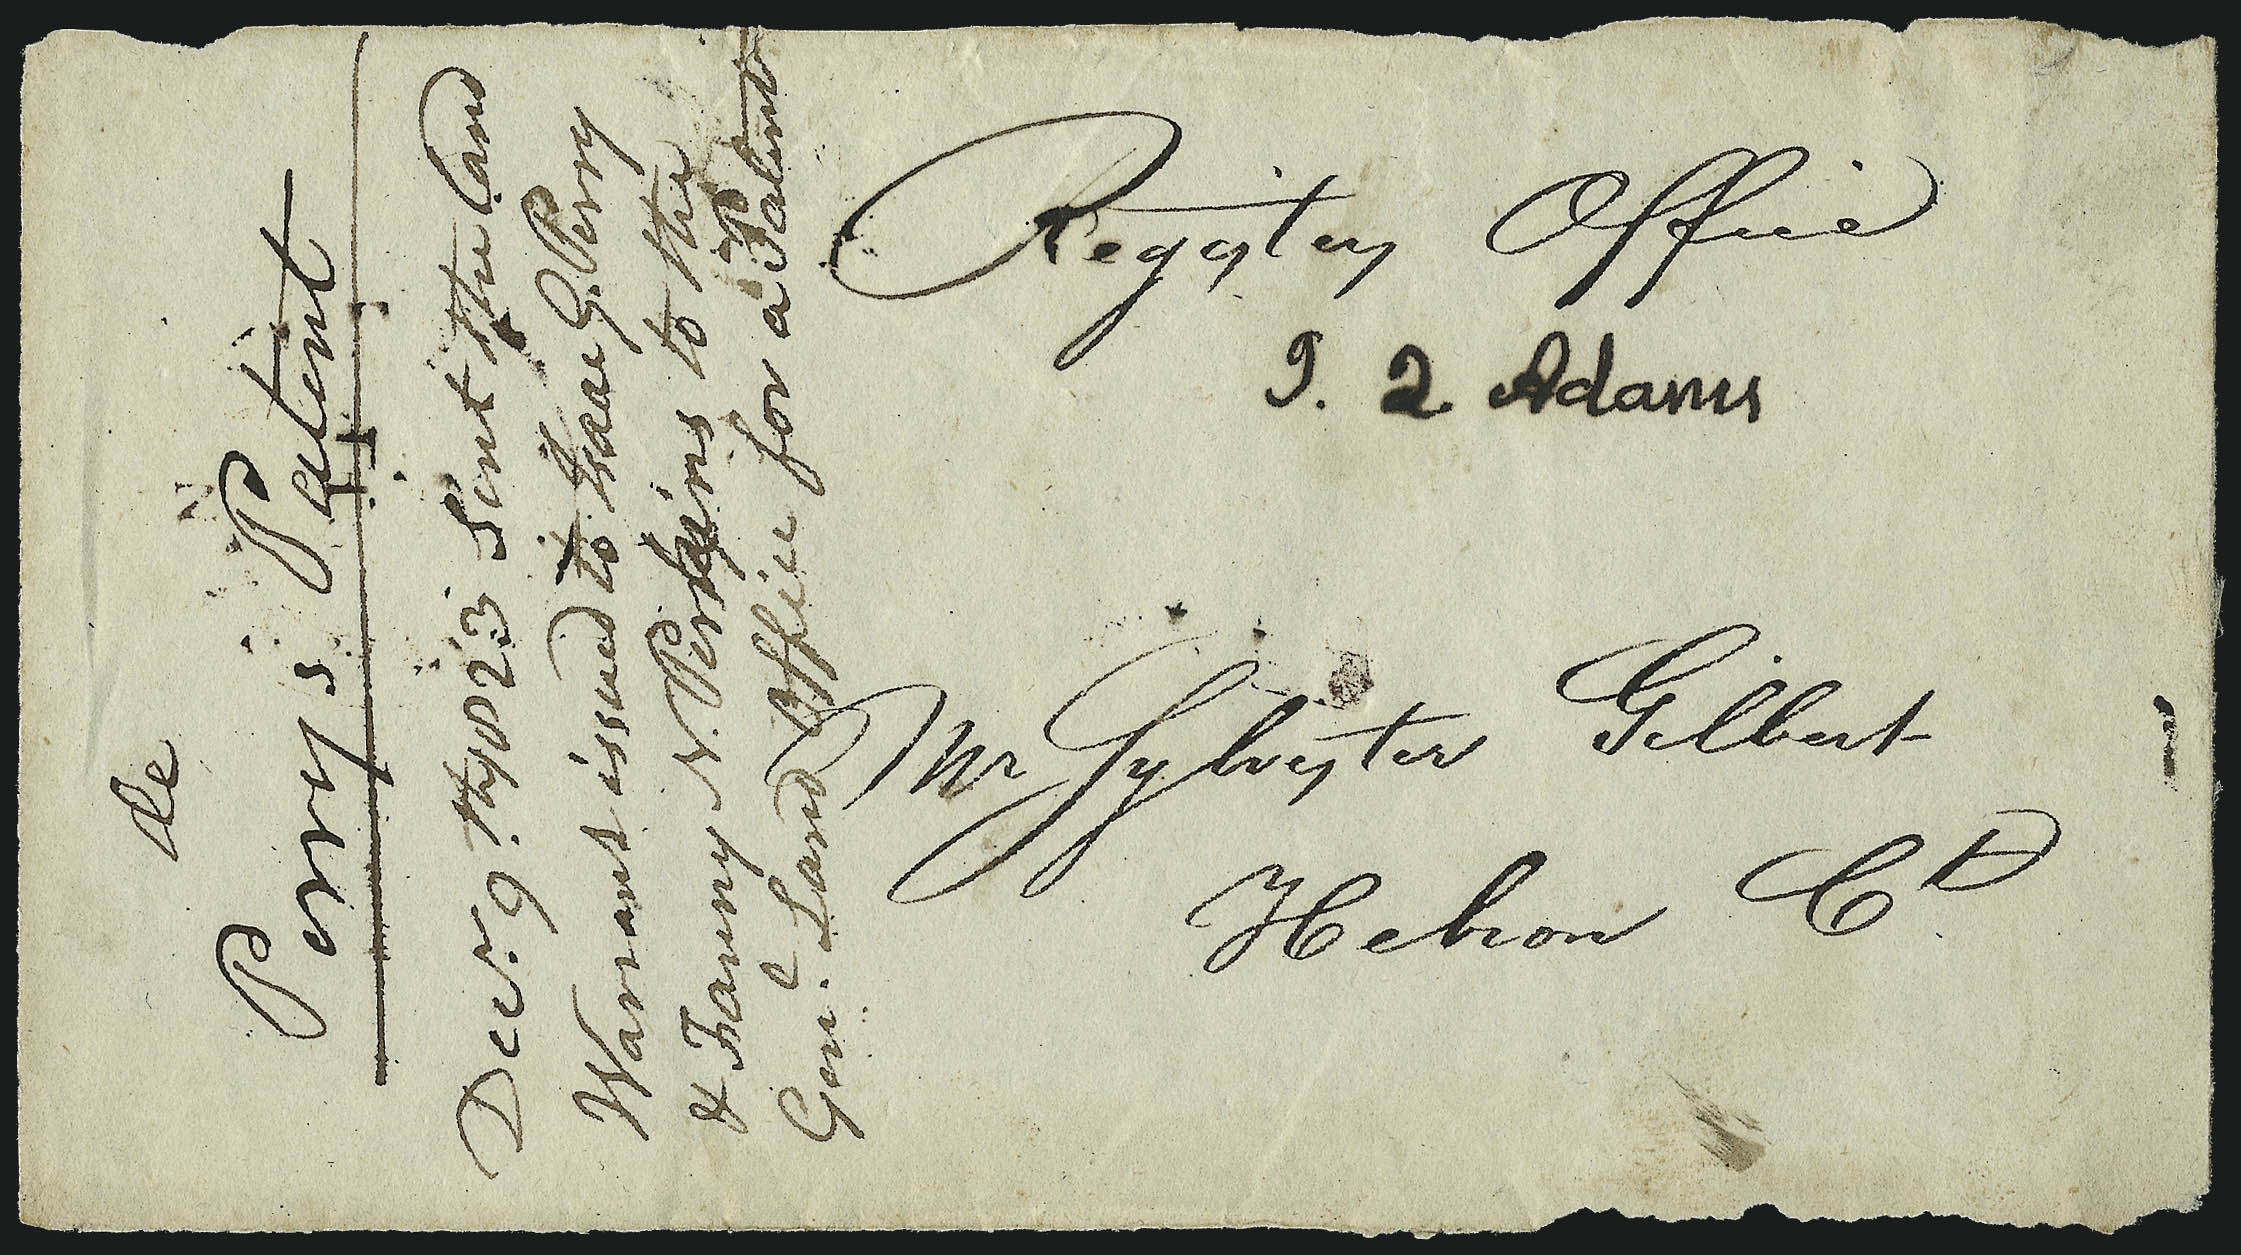 Registry Office
J. Q. Adams
Mr Sylvester Gilbert
Hebron Ct
De
Perrys Patent
Decr. 9th 1823 Sent the Land
Warrants issued to Isaac G. Perry
& Fanny N. Perkins to the
Genl. Land Office for a Patent